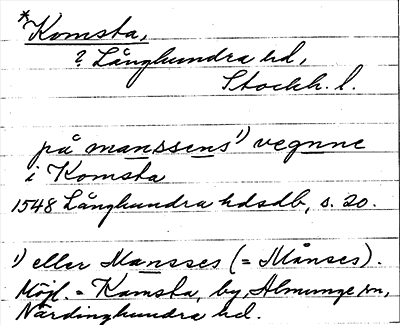 *Komsta,
? Långhundra hd,
Stockh. l.
på manssens¹) vegnne
i Komsta
1548 Långhundra hdsdb, s. 20.
¹) eller Mansses (= Månses).
Möjl. = Kamsta, by, Almunge sn,
Närdinghundra hd.